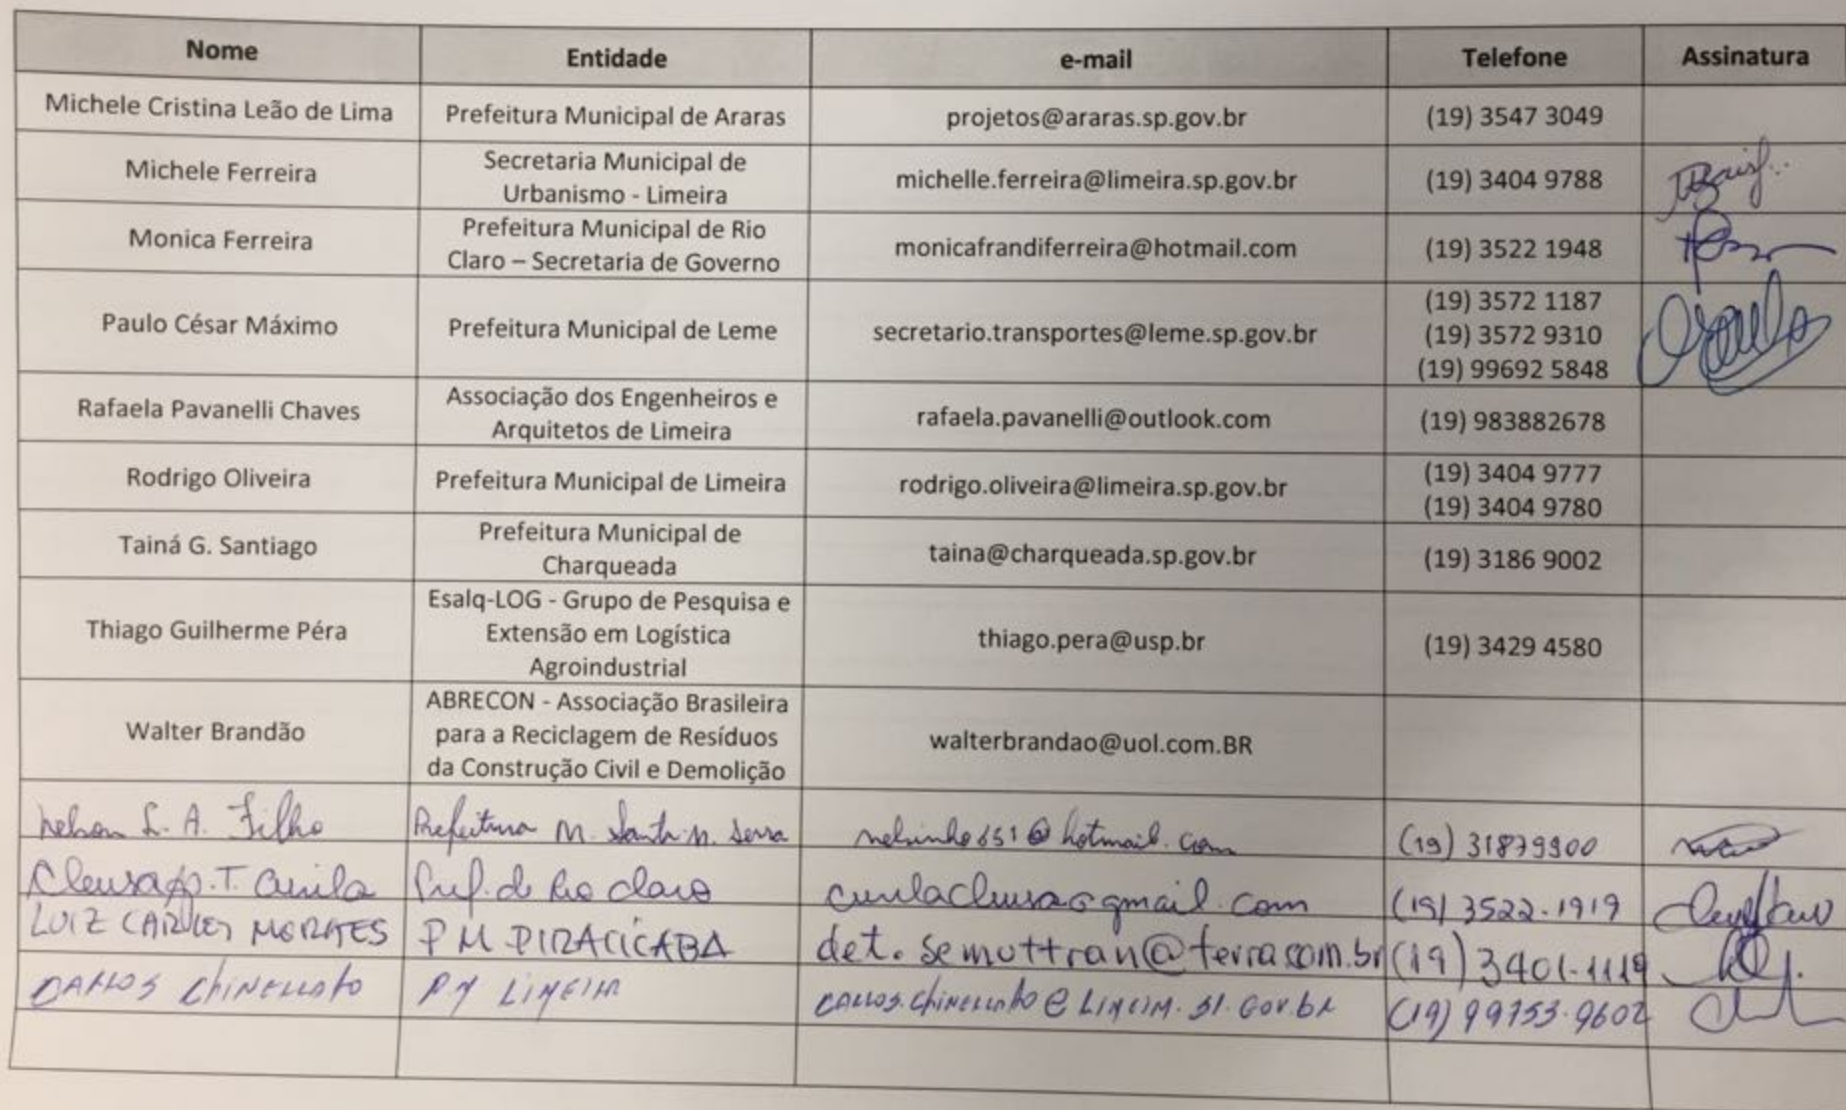 Nome Entidade e-mail Telefone Assinatura
Michele Cristina Leão de Lima Prefeitura Municipal de Araras projetos@araras.sp.gov.br (19) 3547 3049
Michele Ferreira Secretaria Municipal de
Urbanismo - Limeira michelle.ferreira@limeira.sp.gov.br (19) 3404 9788
Monica Ferreira Prefeitura Municipal de Rio
Claro – Secretaria de Governo monicafrandiferreira@hotmail.com (19) 3522 1948
Paulo César Máximo Prefeitura Municipal de Leme secretario.transportes@leme.sp.gov.br (19) 3572 1187
(19) 3572 9310
(19) 99692 5848
Rafaela Pavanelli Chaves Associação dos Engenheiros e
Arquitetos de Limeira rafaela.pavanelli@outlook.com (19) 983882678
Rodrigo Oliveira Prefeitura Municipal de Limeira rodrigo.oliveira@limeira.sp.gov.br (19) 3404 9777
(19) 3404 9780
Tainá G. Santiago Prefeitura Municipal de
Charqueada taina@charqueada.sp.gov.br (19) 3186 9002
Thiago Guilherme Péra Esalq-LOG - Grupo de Pesquisa e
Extensão em Logística
Agroindustrial thiago.pera@usp.br (19) 3429 4580
Walter Brandão ABRECON - Associação Brasileira
para a Reciclagem de Resíduos
da Construção Civil e Demolição walterbrandao@uol.com.BR
Nelson L. A. Filho Prefeitura M. Santa M. Serra nelsinho651@hotmail.com (19) 31879900
Cleusa Ap. T. Pref. de Rio Claro (19) 3522-1919
LUIZ CARLOS MORAES PM PIRACICABA det.semuttran@terra.com.br (19) 3401-1119
CARLOS CHINELLATO PM LIMEIRA CARLOS.CHINELLATO@LIMEIRA.SP.GOV.BR (19) 99753-9602